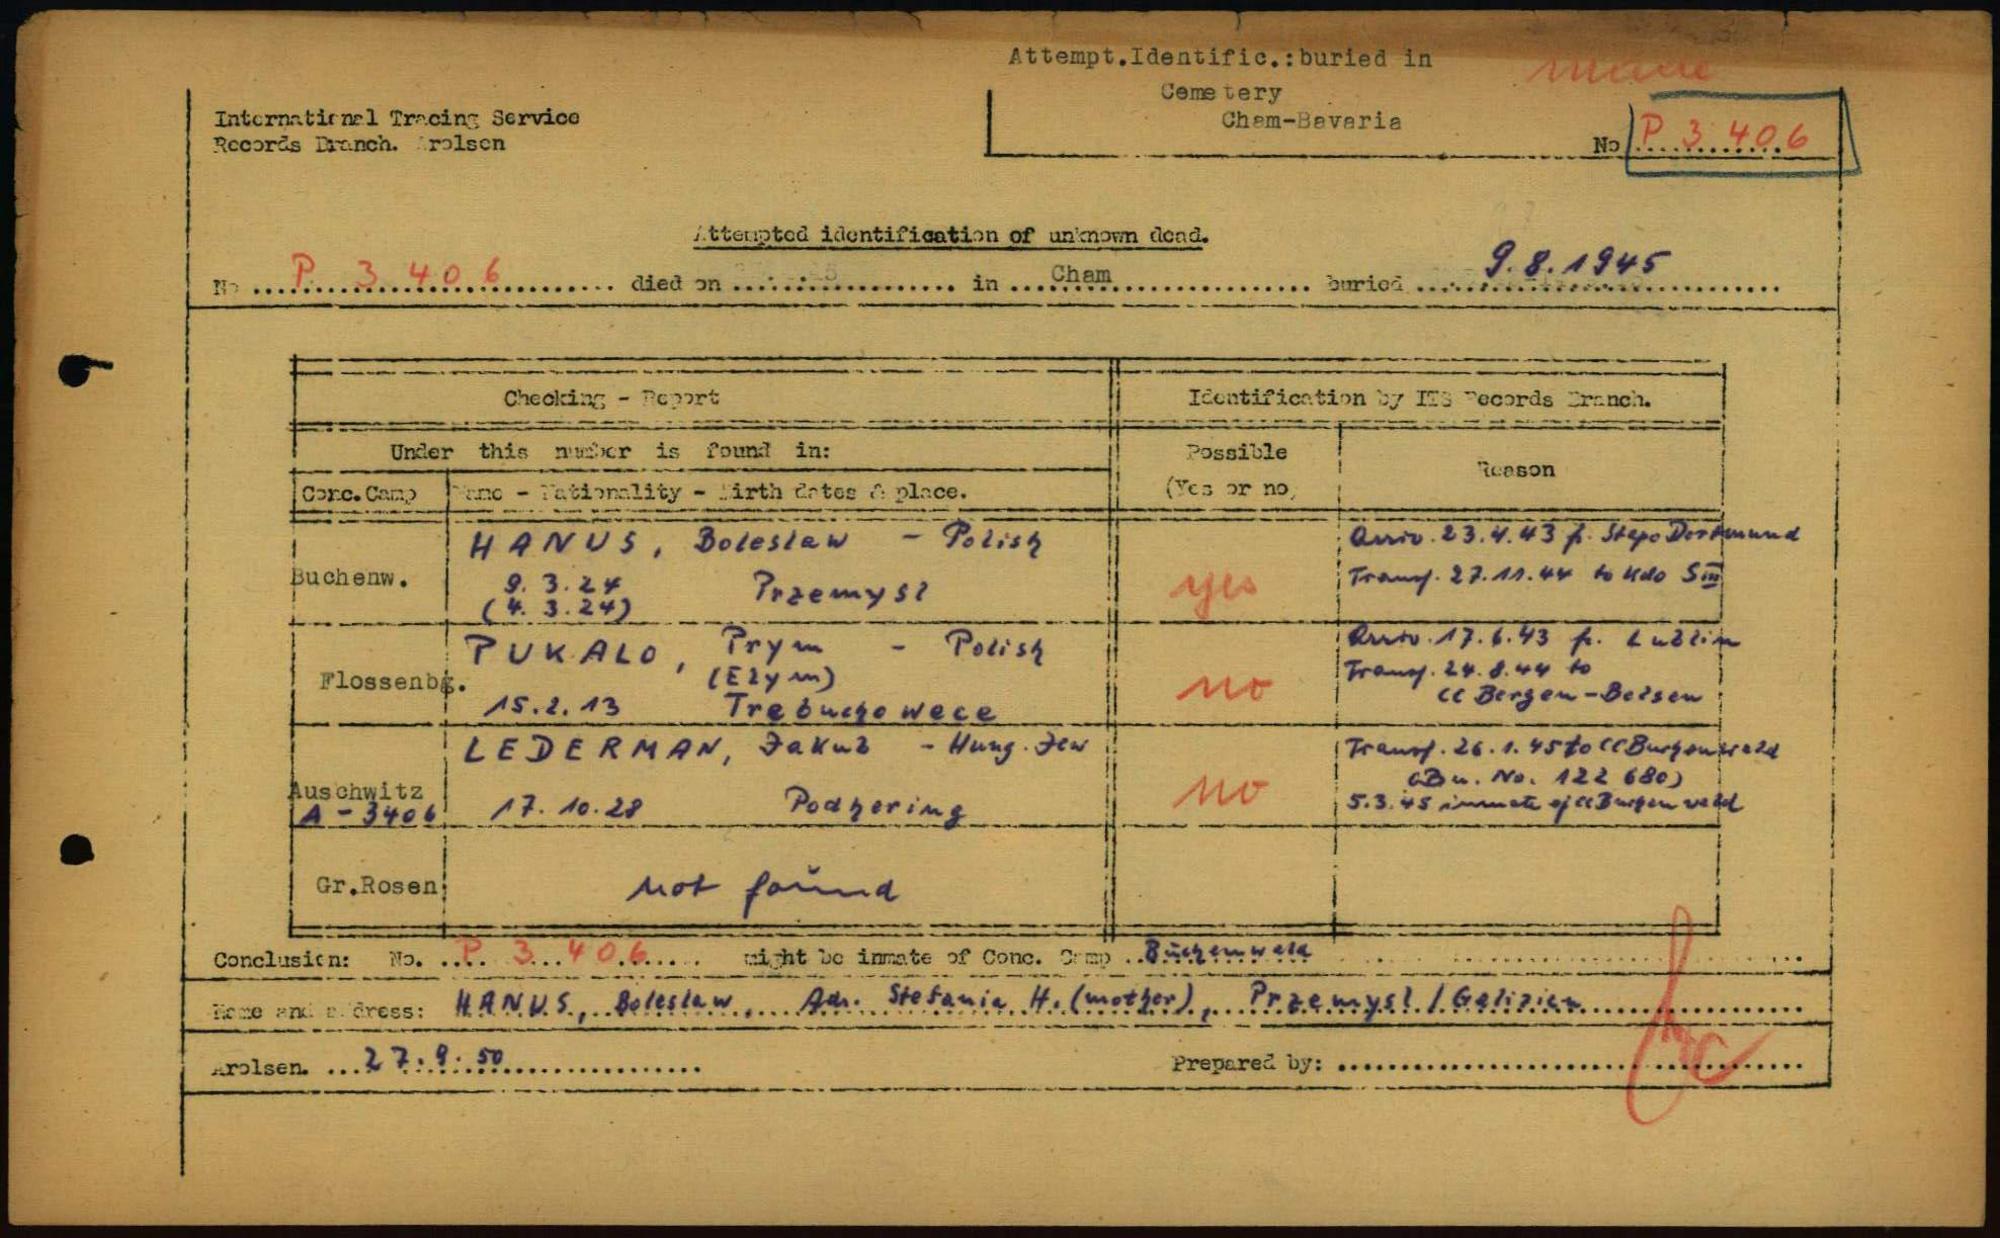 Attempt.Identific.:buried in
Cemetery
Cham-Bavaria
International Tracing Service
Records Branch. Arolsen
No P 3 406
Attempted identification of unknown dead.
No P 3 406 died on in Cham buried 9.8.1945
Checking - Report
Identification by ITS Records Branch.
Under this number is found in:
Possible
(Yes or no)
Reason
Conc.Camp
Name - Nationality - Birth dates & place.
Buchenw.
HANUS, Boleslaw - Polish
9.3.24 Przemysl
(4.3.24)
yes
Arriv. 23.4.43 fr. Stapo Dortmund
Transf. 27.11.44 to Kdo SIII
Flossenbg.
PUKALO, Prym - Polish
(Ezym)
15.2.13 Trebuchowece
no
Arriv. 17.6.43 fr. Lublin
Transf. 24.8.44 to
CC Bergen-Belsen
Auschwitz
A-3406
LEDERMAN, Jakub - Hung. Jew
17.10.28 Podhering
no
Transf. 26.1.45 to CC Buchenwald
(Bu. No. 122 680)
5.3.45 inmate of CC Buchenwald
Gr.Rosen
not found
Conclusion: No. P 3 406 might be inmate of Conc. Camp Buchenwald
Name and address: HANUS, Boleslaw, Adr. Stefania H. (mother), Przemysl / Galizien
Arolsen. 27.9.50
Prepared by: